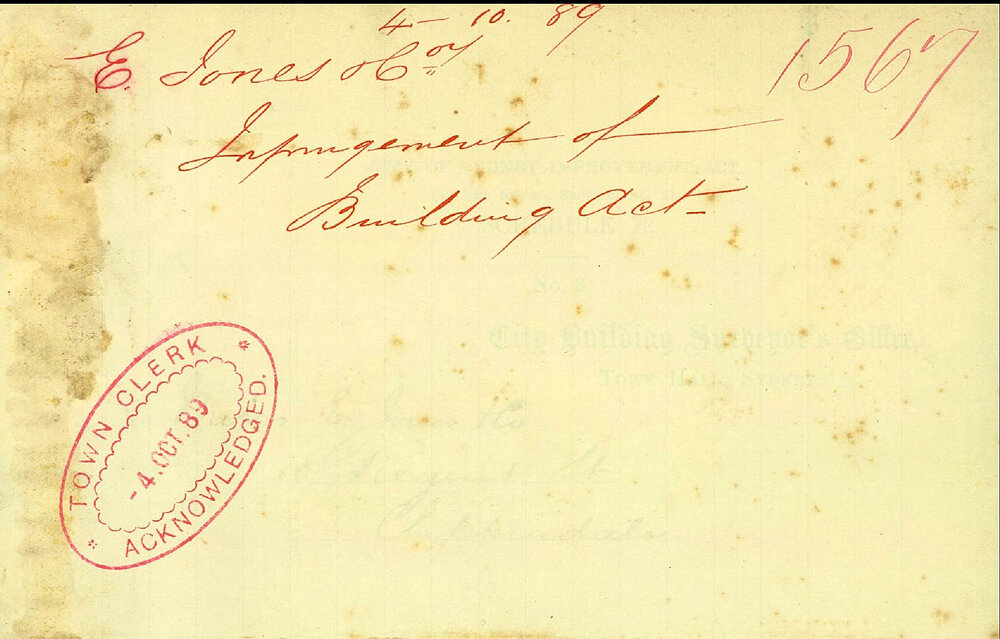 4-10.89
E. Jones & Coy
1567
Infringement of
Building Act-
CITY OF SYDNEY IMPROVEMENT ACT
SCHEDULE
No. 3.
City Building Surveyor's Office,
TOWN HALL, SYDNEY
E Jones & Co
Regent St
Chippendale
TOWN CLERK
-4.OCT.89
ACKNOWLEDGED.